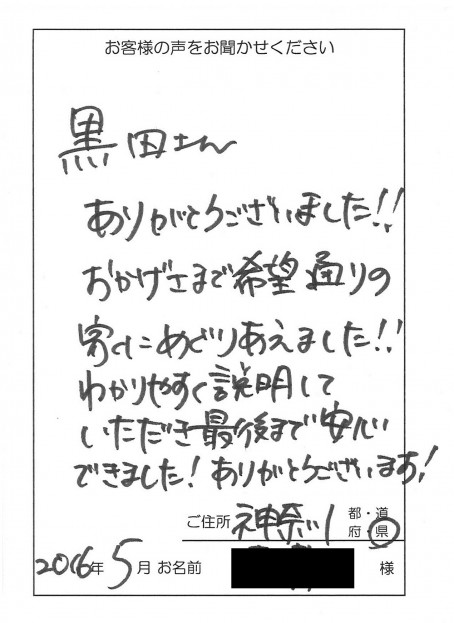 お客様の声をお聞かせください
黒田さん
ありがとうございました!!
おかげさまで希望通りの
家にめぐりあえました!!
わかりやすく説明して
いただき最後まで安心
できました！ありがとうございます！
ご住所 神奈川 都・道
府・県
2016年 5月 お名前 様